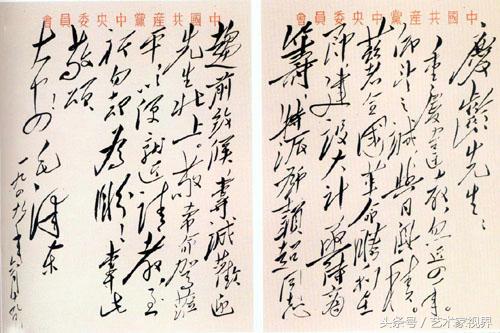 中國共產黨中央委員會
慶齡先生：
重慶違教，忽近四年。
仰望之誠，與日俱積。
茲者全國革命勝利在
即，建設大計，亟待商
籌，特派鄧穎超同志
中國共產黨中央委員會
趨前致候，專誠歡迎
先生北上。敬希命駕蒞
平，以便就近請教，至
祈勿却為盼！專此
敬頌
大安！毛澤東
一九四九年六月十九日
头条号/艺术家视界